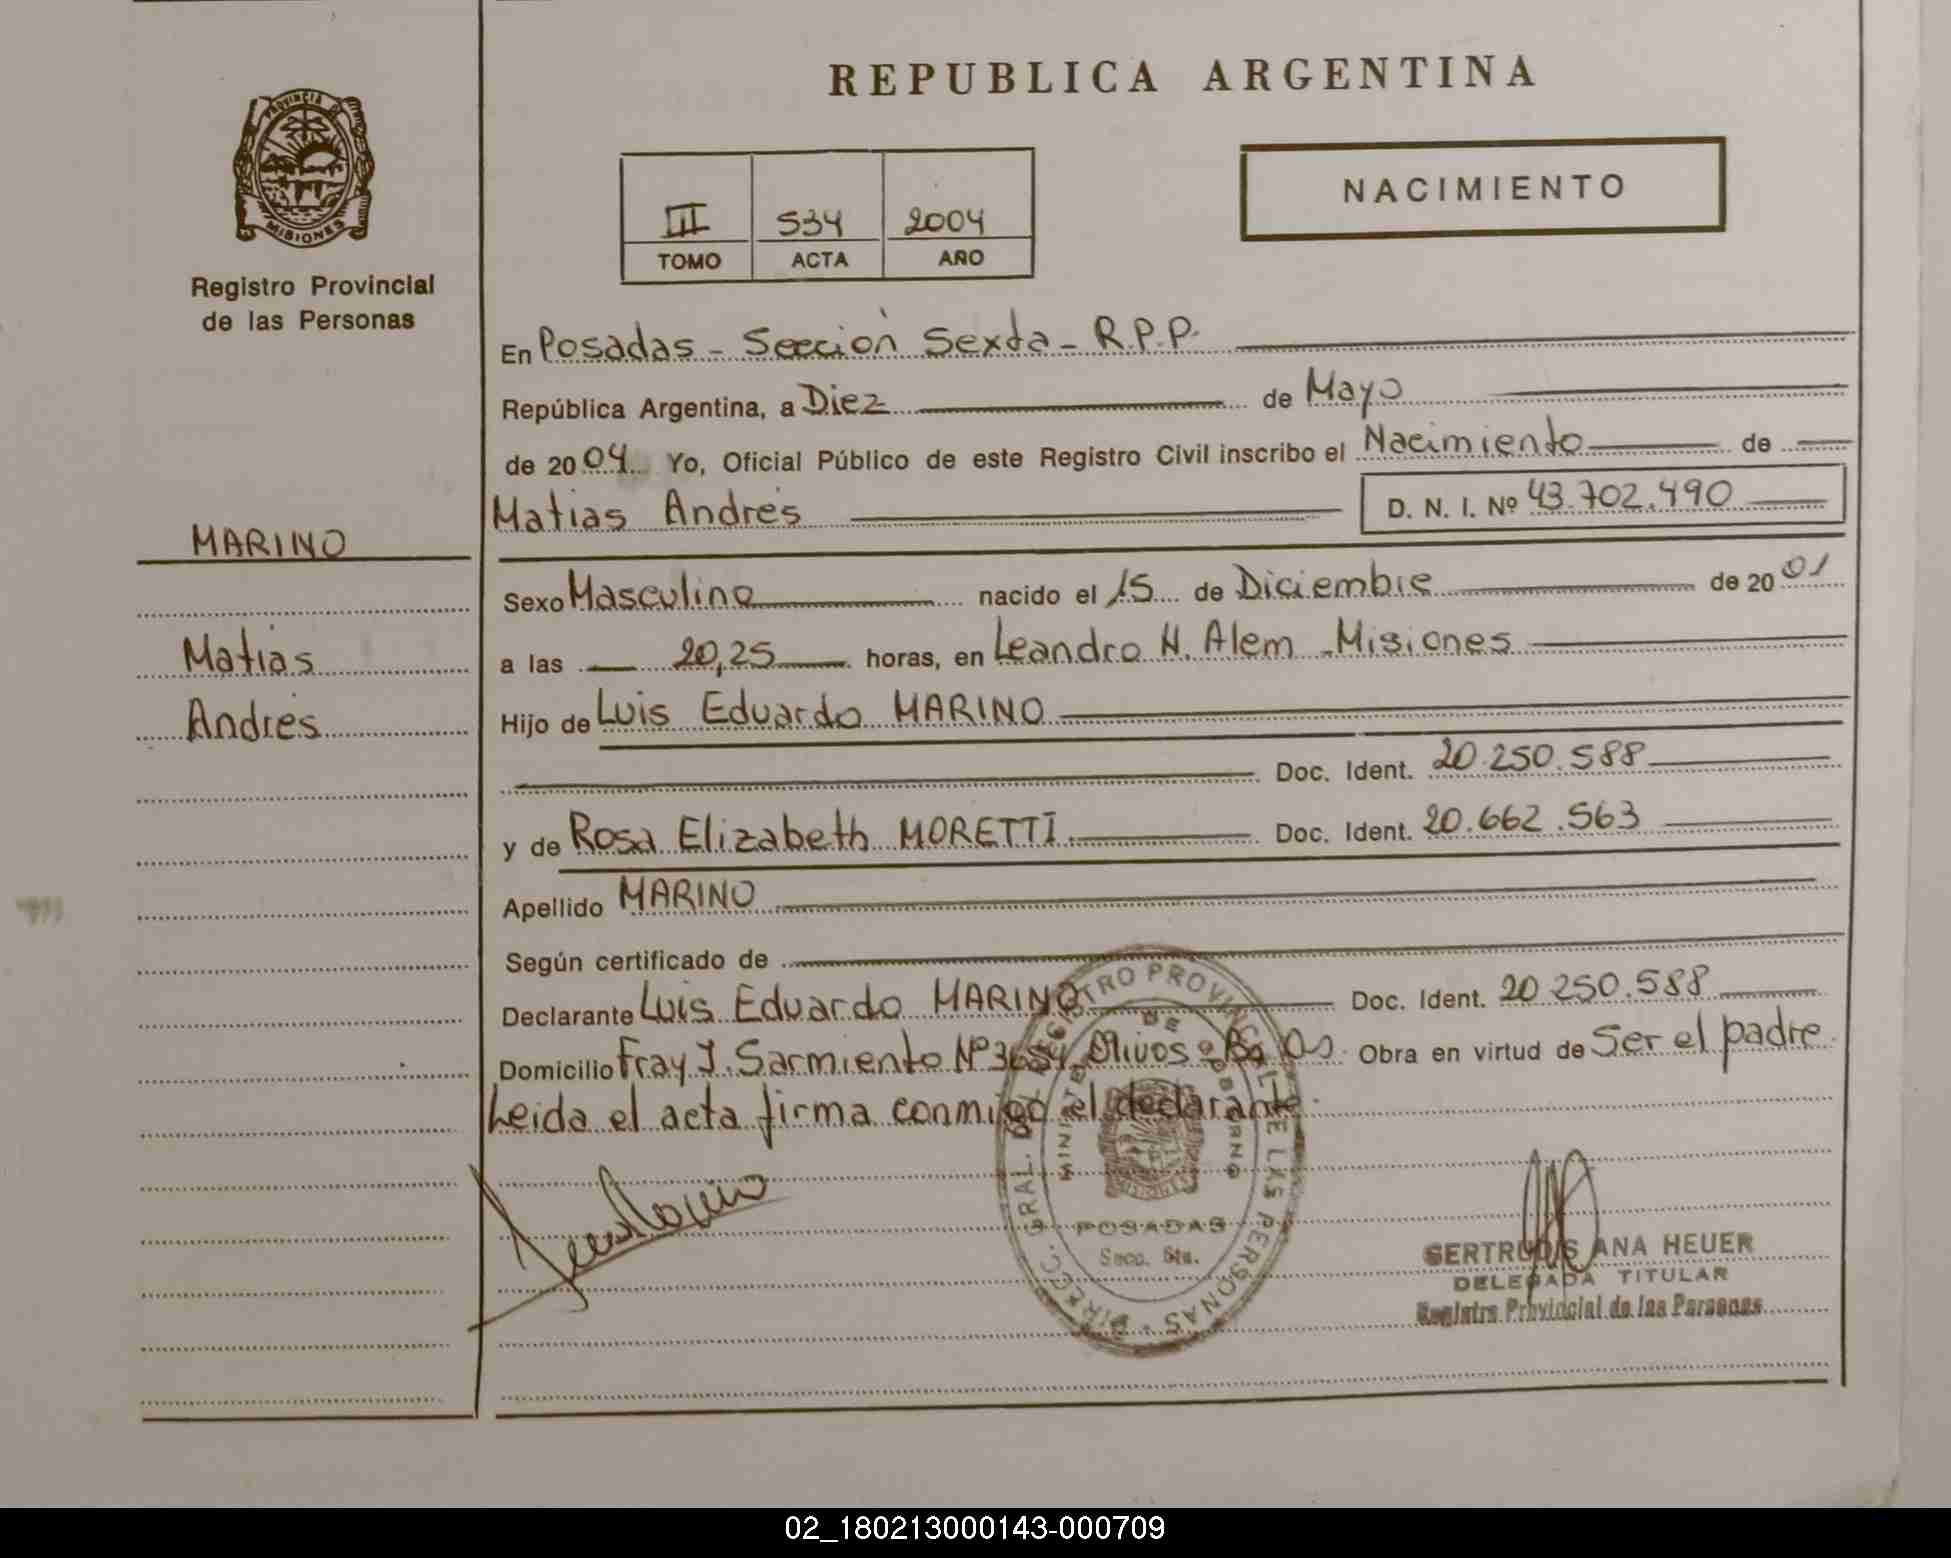 REPUBLICA ARGENTINA
PROVINCIA DE
MISIONES
Registro Provincial
de las Personas
III 534 2004
TOMO ACTA AÑO
NACIMIENTO
En Posadas - Sección Sexta - R.P.P.
República Argentina, a Diez de Mayo
de 2004 Yo, Oficial Público de este Registro Civil inscribo el Nacimiento de
Matias Andrés D. N. I. Nº 43.702.490
MARINO
Matias
Andrés
Sexo Masculino nacido el 15 de Diciembre de 2001
a las 20,25 horas, en Leandro N. Alem - Misiones
Hijo de Luis Eduardo MARINO
Doc. Ident. 20.250.588
y de Rosa Elizabeth MORETTI Doc. Ident. 20.662.563
Apellido MARINO
Según certificado de
Declarante Luis Eduardo MARINO Doc. Ident. 20 250.588
Domicilio Fray J. Sarmiento Nº Olivos - Bs As. Obra en virtud de Ser el padre.
Leida el acta firma conmigo el declarante.
DIRECC. GRAL. DEL REGISTRO PROVINCIAL DE LAS PERSONAS
MINISTERIO DE GOBIERNO
POSADAS
Secc. 6ta.
GERTRUDIS ANA HEUER
DELEGADA TITULAR
Registro Provincial de las Personas
02_180213000143-000709